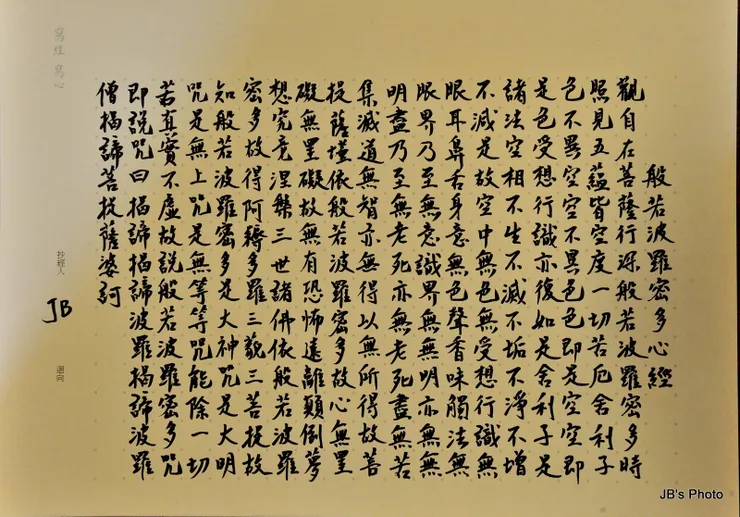 般若波羅密多心經
觀自在菩薩行深般若波羅密多時
照見五蘊皆空度一切苦厄舍利子
色不異空空不異色色即是空空即
是色受想行識亦復如是舍利子是
諸法空相不生不滅不垢不淨不增
不減是故空中無色無受想行識無
眼耳鼻舌身意無色聲香味觸法無
眼界乃至無意識界無無明亦無無
明盡乃至無老死亦無老死盡無苦
集滅道無智亦無得以無所得故菩
提薩埵依般若波羅密多故心無罣
礙無罣礙故無有恐怖遠離顛倒夢
想究竟涅槃三世諸佛依般若波羅
密多故得阿耨多羅三藐三菩提故
知般若波羅密多是大神咒是大明
咒是無上咒是無等等咒能除一切
苦真實不虛故說般若波羅密多咒
即說咒曰揭諦揭諦波羅揭諦波羅
僧揭諦菩提薩婆訶
寫經 寫心
抄經人
JB
迴向
JB's Photo